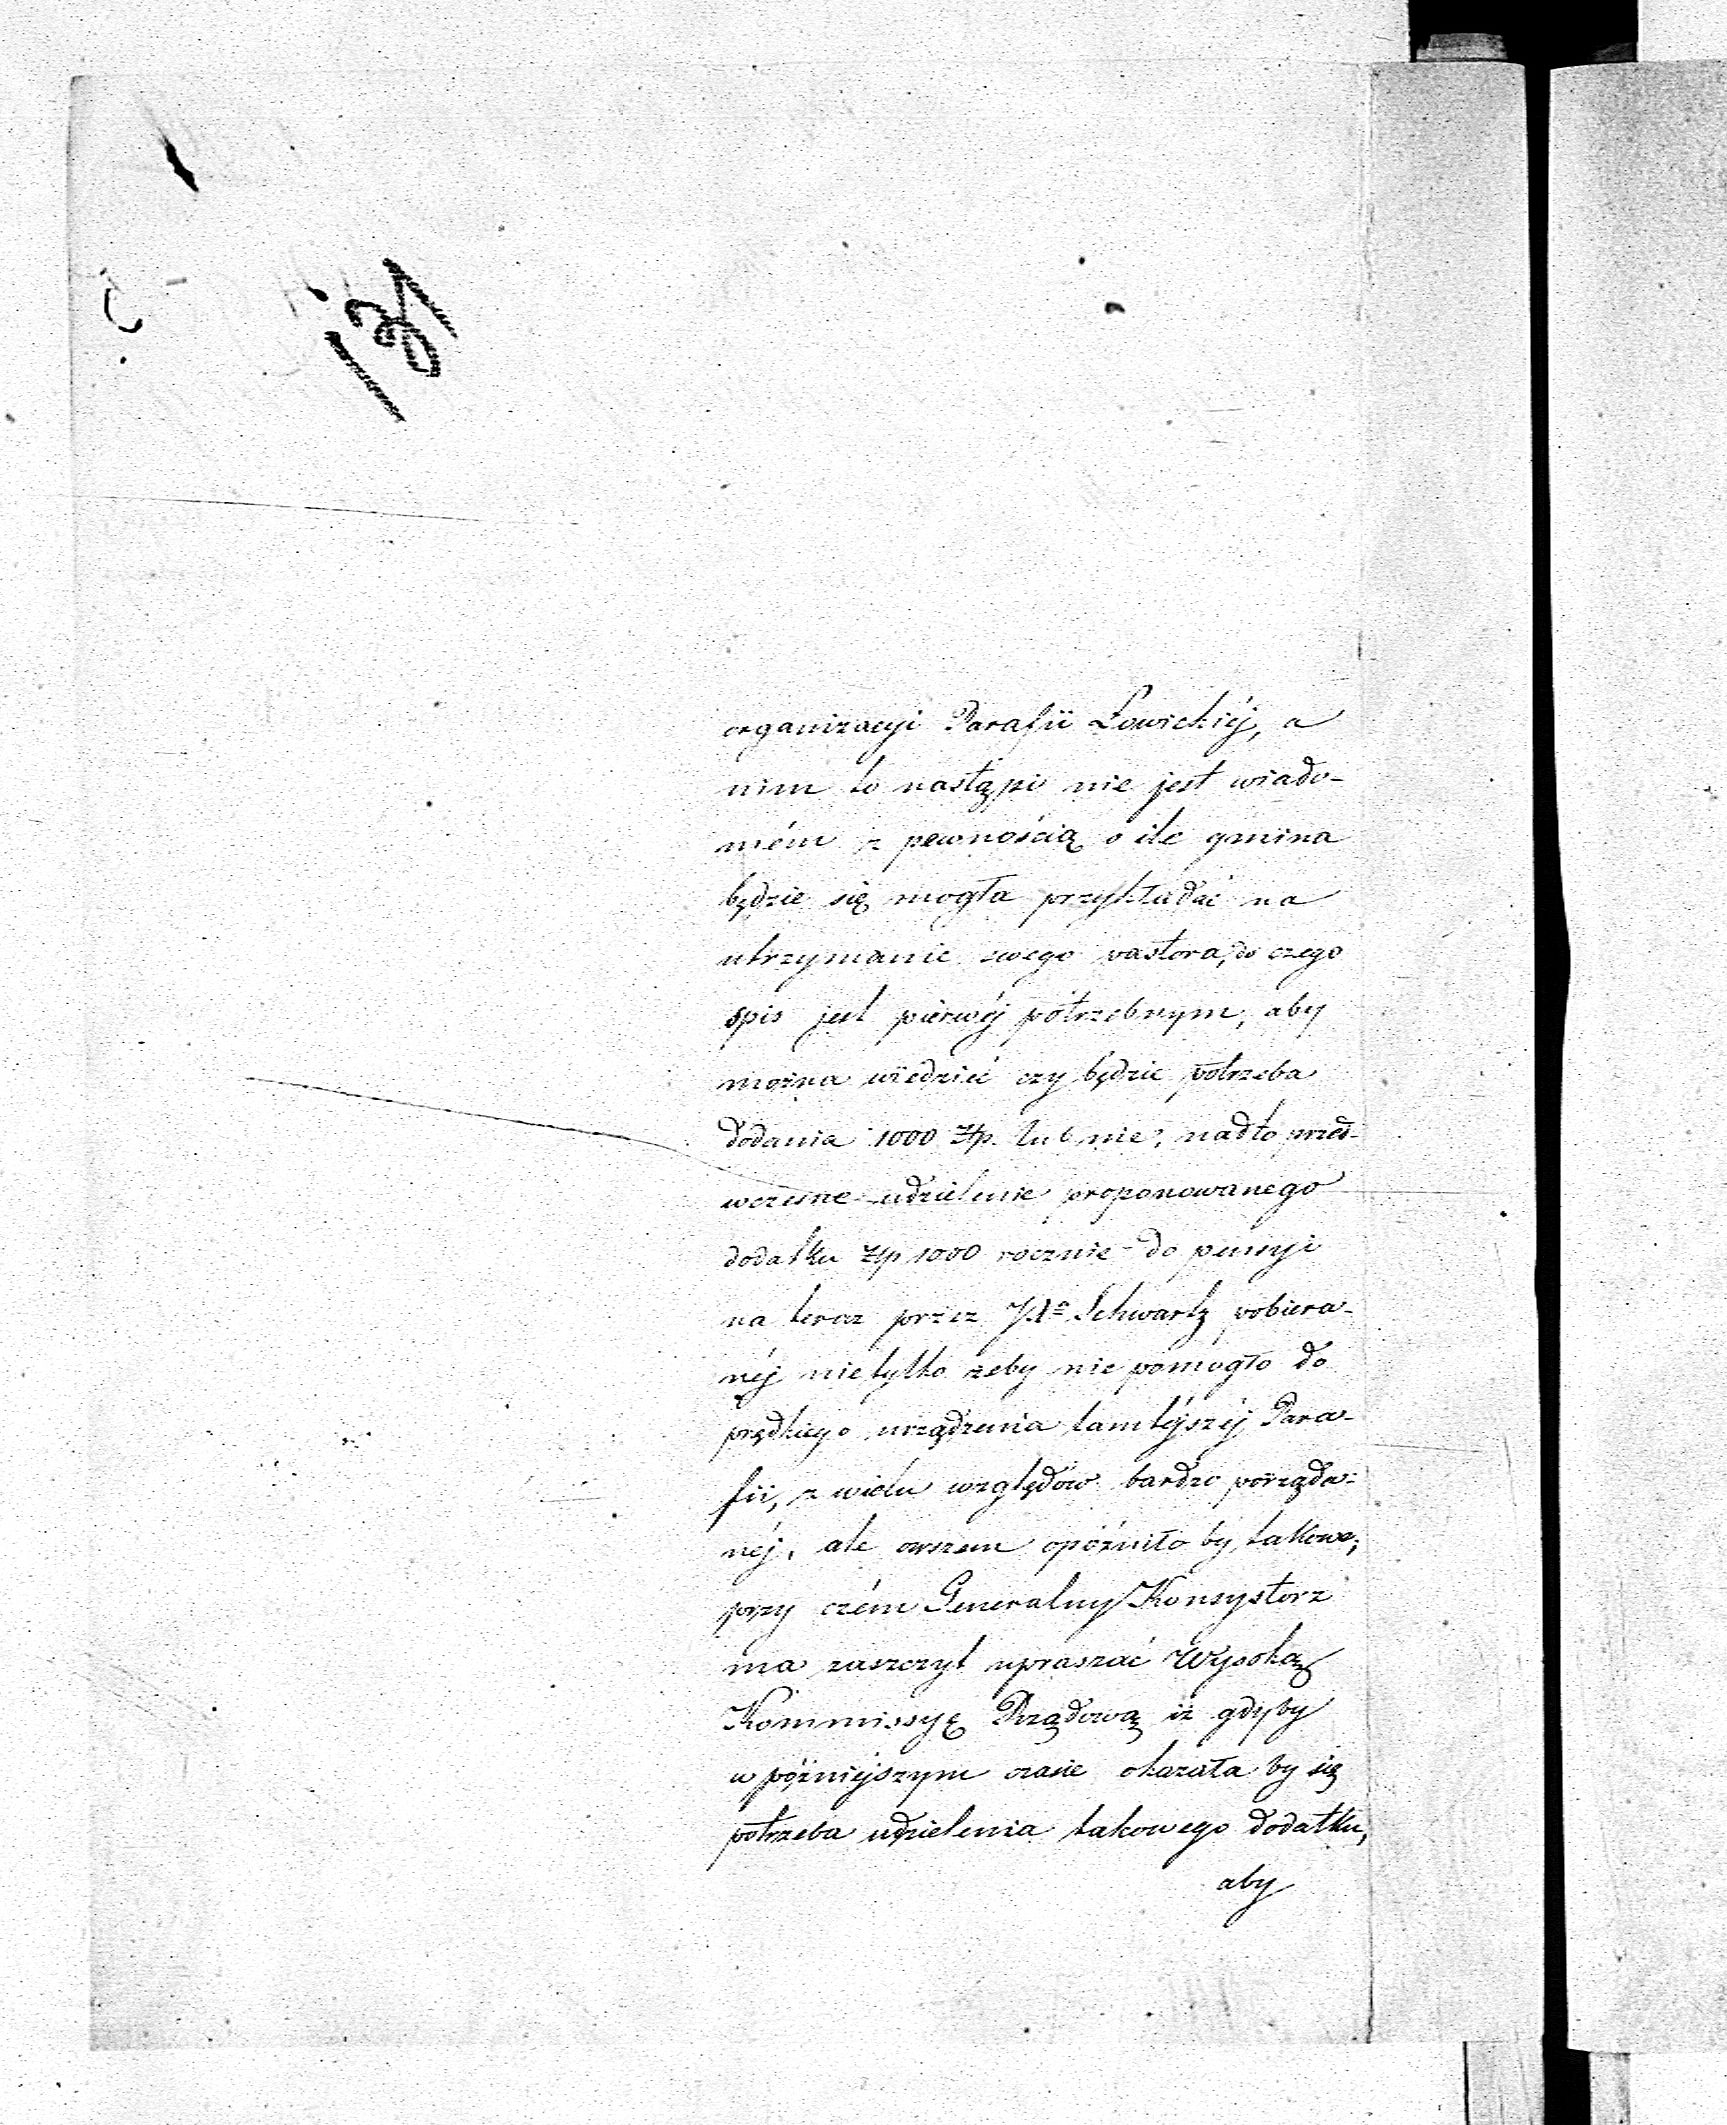 organizacyi Parafii Łowickiéj, a
nim to nastąpi nie jest wiado-
mém z pewnością o ile gmina
będzie się mogła przykładać na
utrzymanie swego pastora, do czego
spis jest pierwéj potrzebnym, aby
można wiedzieć czy będzie potrzeba
dodania 1000 Złp. lub nie; nadto przed-
wczesne udzielenie proponowanego
dodatku Złp 1000 rocznie do pensyi
na teraz przez Schwartz pobiera-
néj nietylko żeby nie pomogło do
prędkiego urządzenia tamtéjszéj Para-
fii, z wielu względów bardzo porząda-
néj, ale owszem opóźniło by takowe;
przy czém Generalny Konsystorz
ma zaszczyt upraszać Wysoką
Kommissyę Rządową iż gdyby
w późniejszym czasie okazała by się
potrzeba udzielenia takowego dodatku,
aby